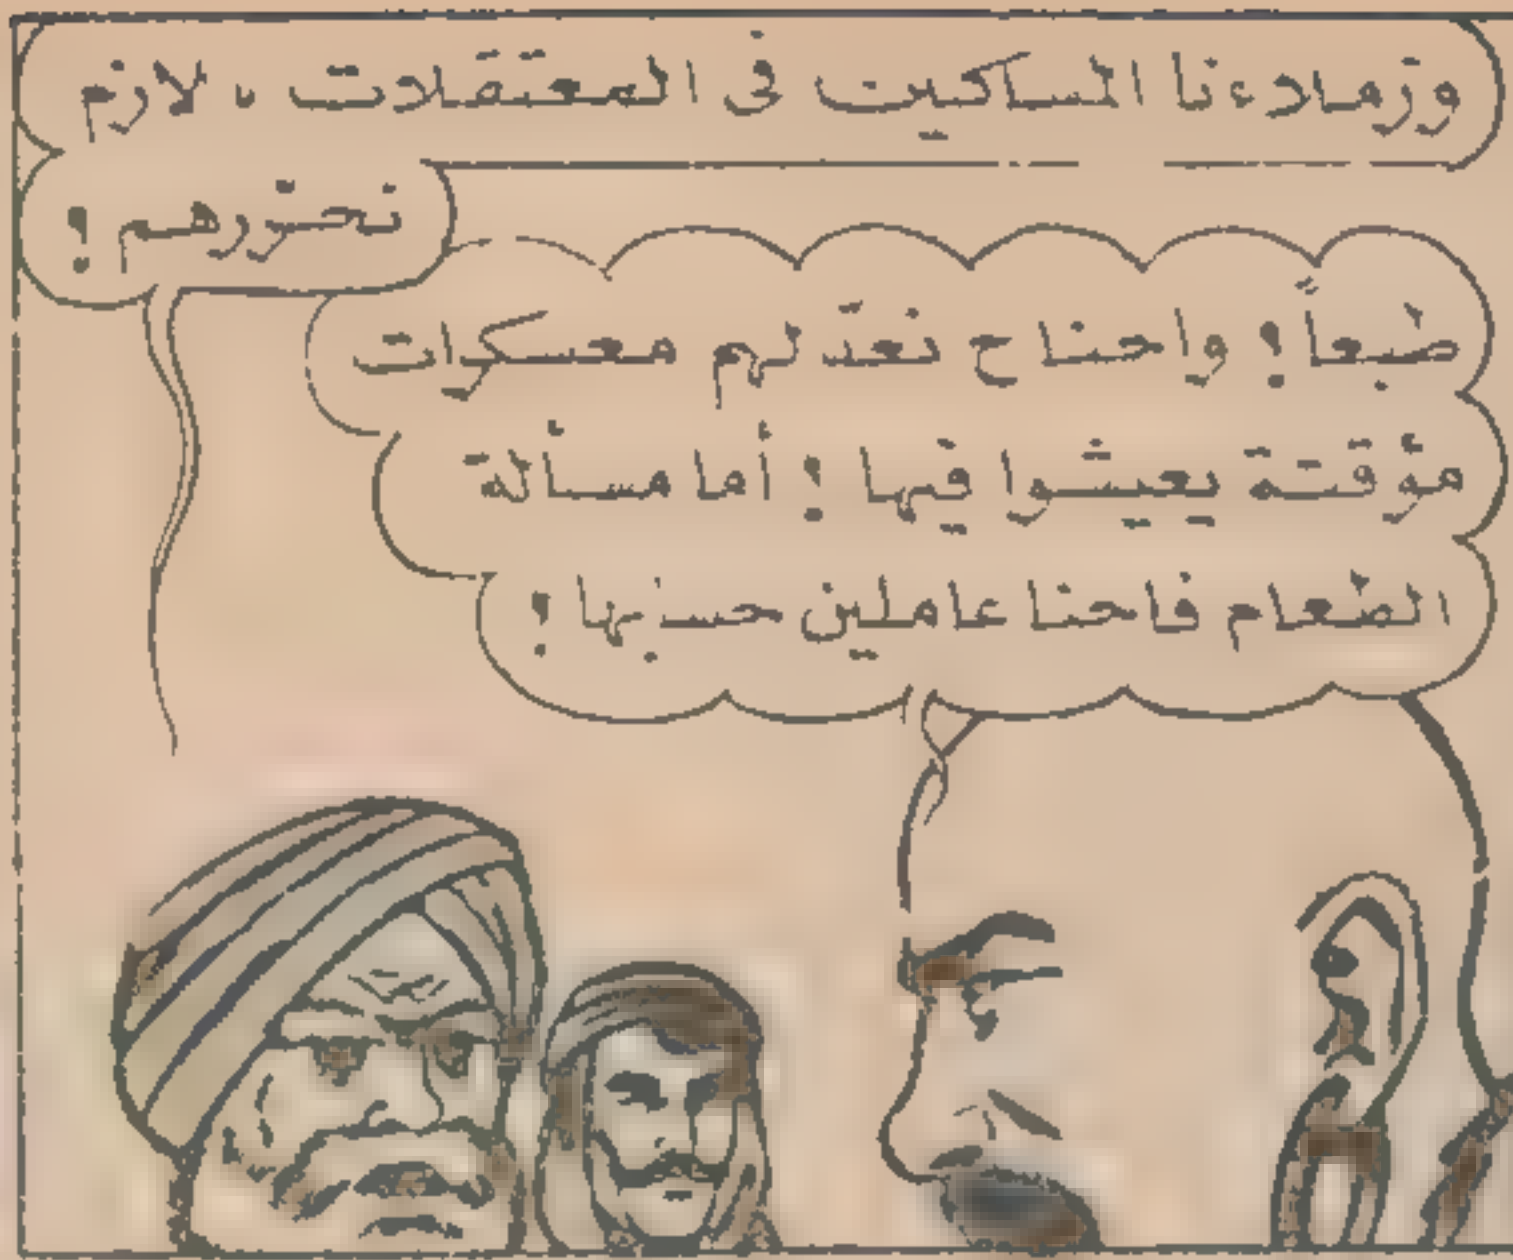 وزملاءنا المساكين فى المعتقلات، لازم
نحرّرهم!
طبعاً! واحنا ح نعدّ لهم معسكرات
مؤقتة يعيشوا فيها! أما مسألة
الطعام فاحنا عاملين حسابها!